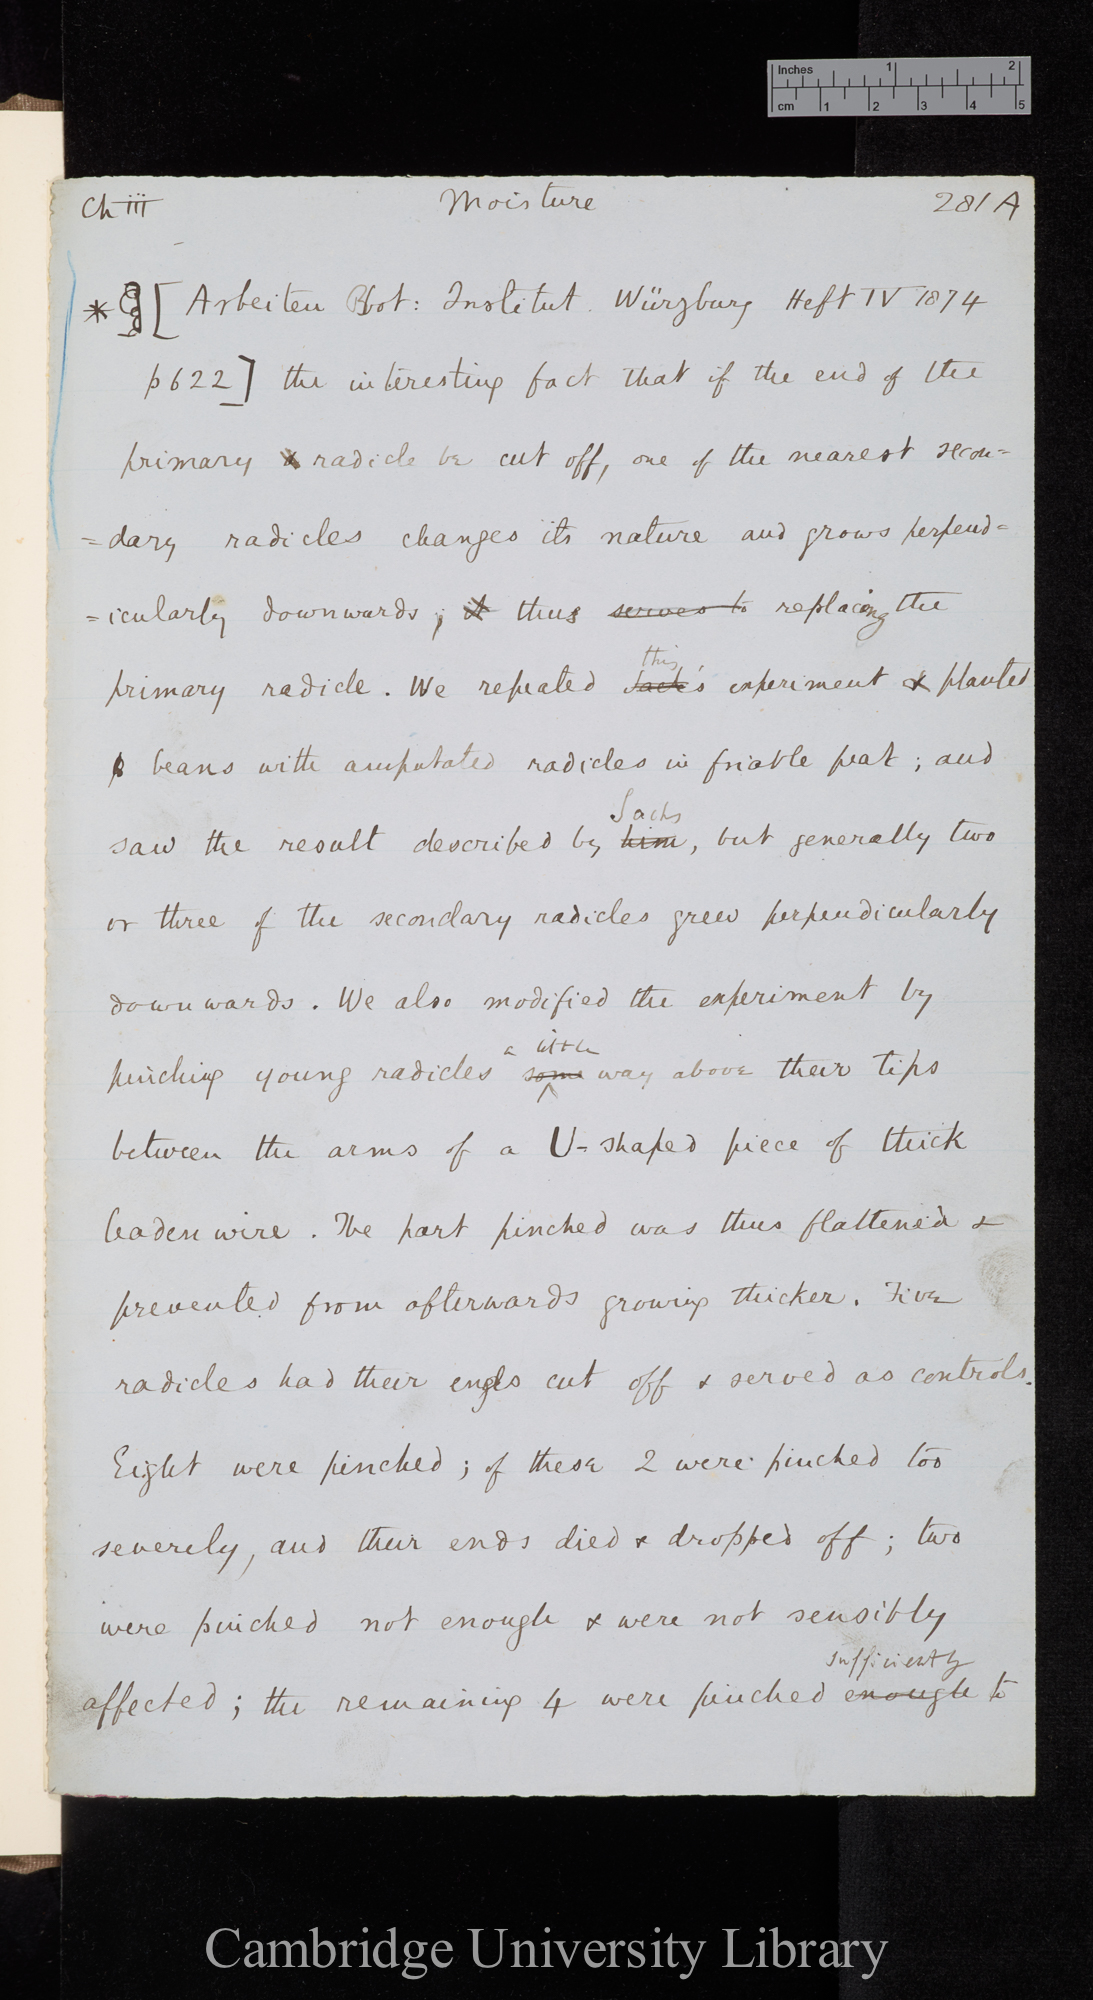 Inches 1 2
cm 1 2 3 4 5
Ch iii Moisture 281 A
* [Arbeiten Bot: Institut. Würzburg Heft IV 1874
p622] the interesting fact that if the end of the
primary radicle be cut off, one of the nearest secon=
=dary radicles changes its nature and grows perpend=
=icularly downwards; it thus serves to replacing the
this
primary radicle. We repeated Sach's experiment & planted
beans with amputated radicles in friable peat; and
Sachs
saw the result described by him, but generally two
or three of the secondary radicles grew perpendicularly
downwards. We also modified the experiment by
a little
pinching young radicles some way above their tips
between the arms of a U-shaped piece of thick
leaden wire. The part pinched was thus flattened &
prevented from afterwards growing thicker. Five
radicles had their ends cut off & served as controls.
Eight were pinched; of these 2 were pinched too
severely, and their ends died & dropped off; two
were pinched not enough & were not sensibly
sufficiently
affected; the remaining 4 were pinched enough to
Cambridge University Library